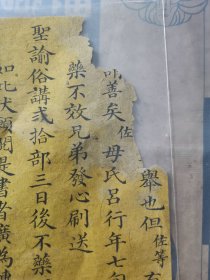 舉也但佐等有
善矣佐母氏呂行年七旬
藥不效兄弟發心刷送
聖諭俗講弐拾部三日後不藥
如此大願閱是書者廣為傳